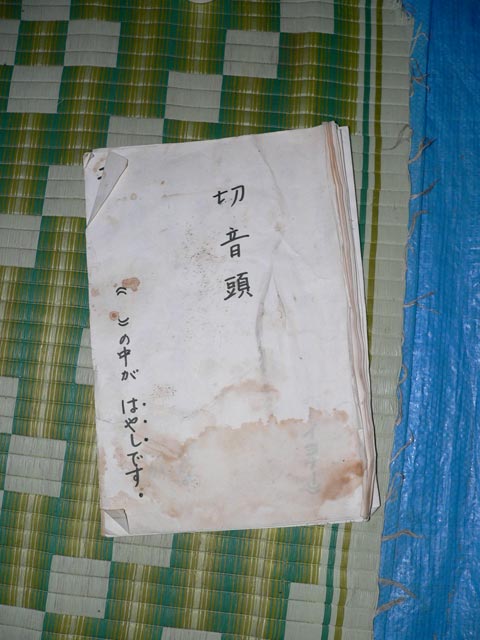 切音頭
《 》の中が はやしです。